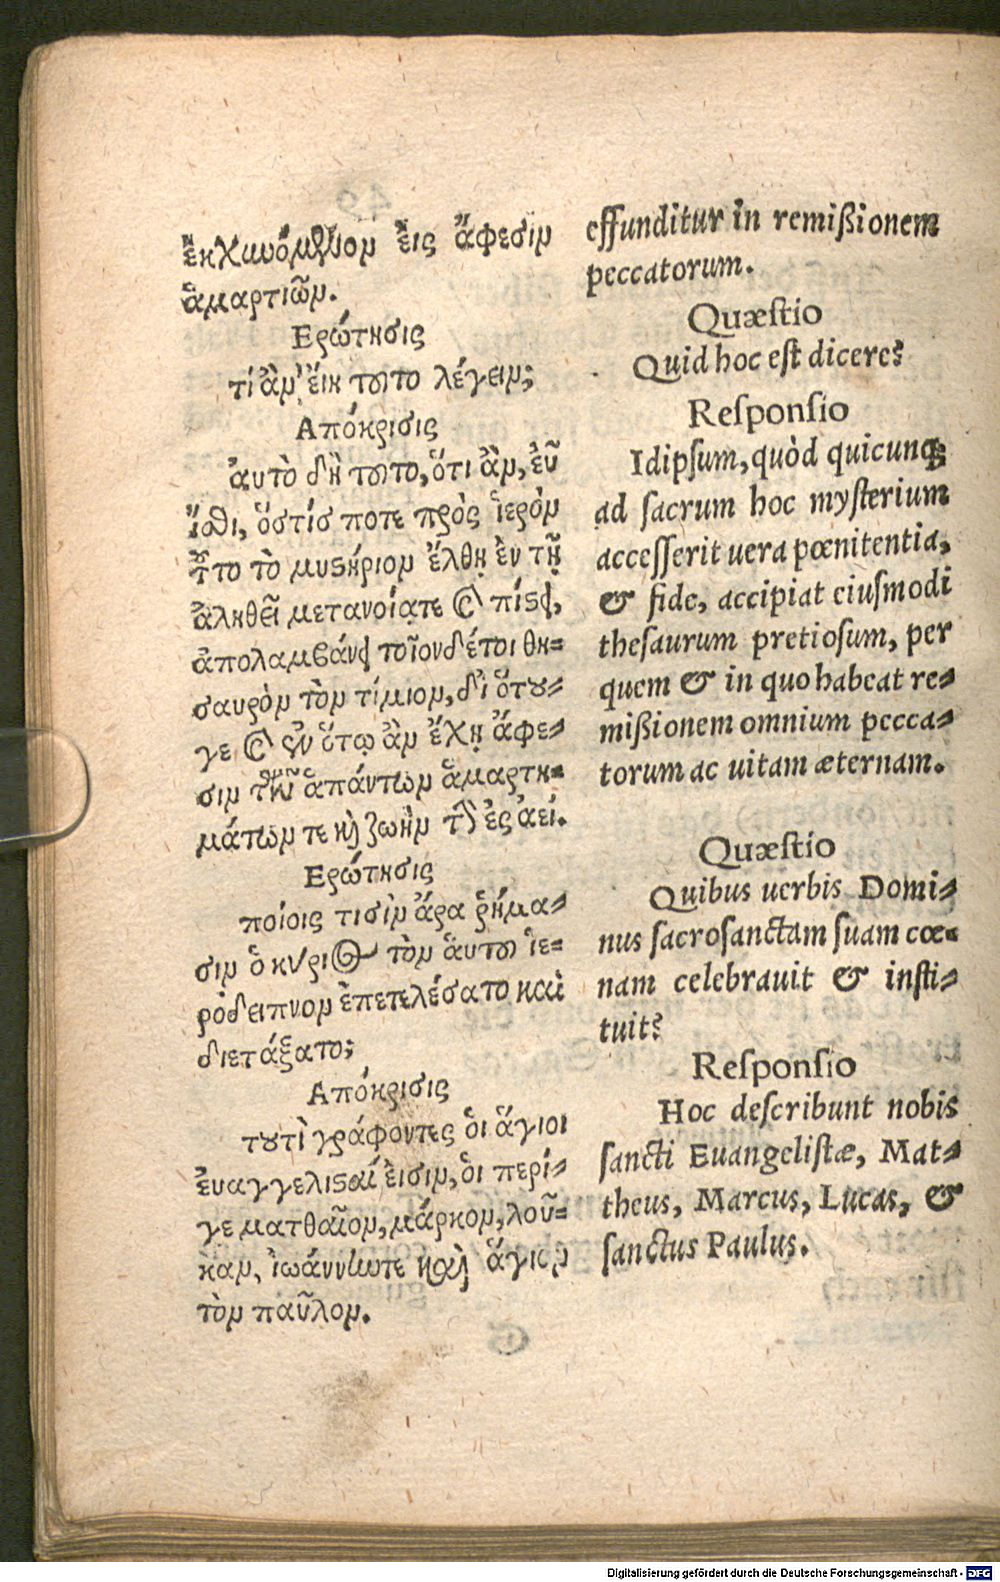 ἐκχυνόμενον ἐις ἄφεσιν
ἁμαρτιῶν.
Ερώτησις
τί ἂν ἔιη τουτο λέγειν;
Απόκρισις
ἀυτὸ δὴ τουτο, ὅτι ἂν, ἐῦ
ἴσθι, ὅστίς ποτε πρὸς ἱερὸν
τὸ μυστήριον ἔλθῃ ἐν τῇ
ἀληθεῖ μετανοίᾳ τε καὶ πίστει,
ἀπολαμβάνει τοῖονδέτοι θη=
σαυρὸν τὸν τίμιον, δἰ ὅτου-
γε καὶ ἐν ὅτῳ ἂν ἔχῃ ἄφε-
σιν τῶν ἁπάντων ἁμαρτη=
μάτων τε κὴ ζωὴν τὴν ἐς ἀεί.
Ερώτησις
ποίοις τισὶν ἄρα ῥήμα-
σιν ὁ κύριος τὸν ἁυτου ἱε-
ρόδειπνον ἐπετελέσατο καὶ
διετάξατο;
Απόκρισις
τουτὶ γράφοντες ὁι ἅγιοι
ἐυαγγελισταί ἐισιν, ὁι περί-
γε ματθαῖον, μάρκον, λοῦ=
καν, ἰωάννην τε καὶ ἅγιον
τὸν παῦλον.
effunditur in remißionem
peccatorum.
Quæstio
Quid hoc est dicere?
Responsio
Idipsum, quòd quicunq;
ad sacrum hoc mysterium
accesserit uera pœnitentia,
& fide, accipiat eiusmodi
thesaurum pretiosum, per
quem & in quo habeat re-
mißionem omnium pecca-
torum ac uitam æternam.
Quæstio
Quibus uerbis Domi-
nus sacrosanctam suam cœ-
nam celebrauit & insti-
tuit?
Responsio
Hoc describunt nobis
sancti Euangelistæ, Mat-
theus, Marcus, Lucas, &
sanctus Paulus.
Digitalisierung gefördert durch die Deutsche Forschungsgemeinschaft - DFG